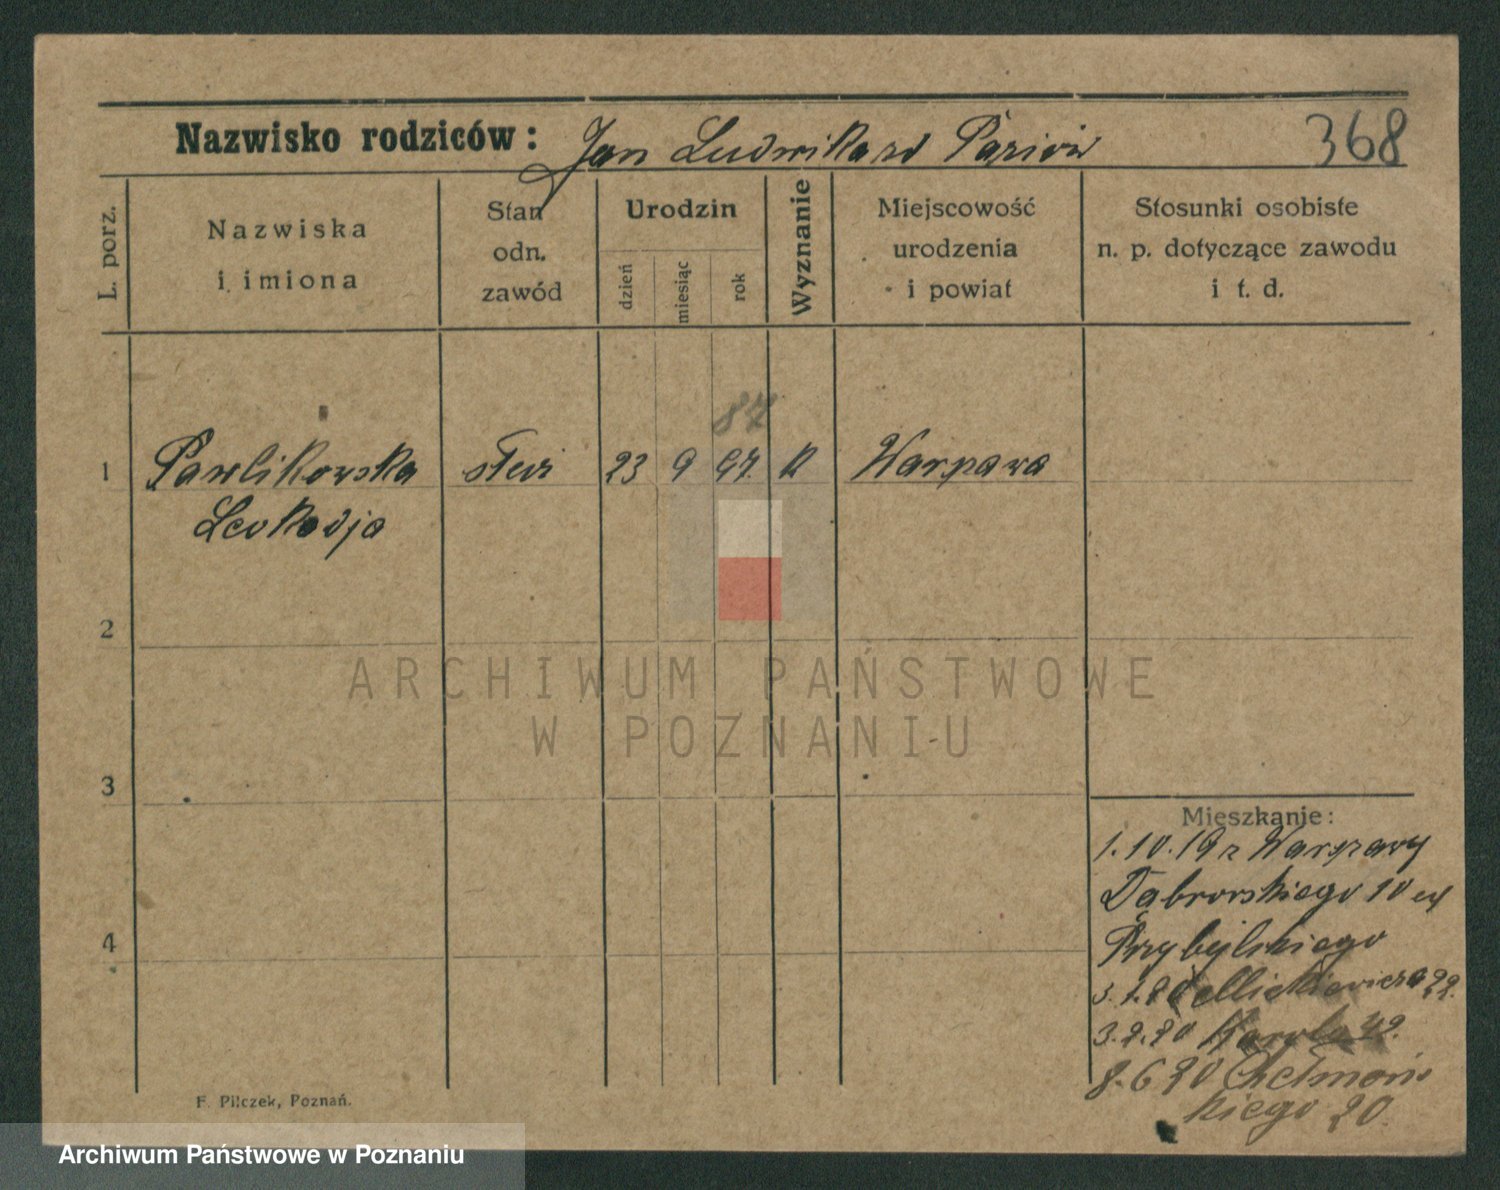 Nazwisko rodziców: Jan Ludwika zd Paziów 368
L. porz.
Nazwiska
i imiona
Stan
odn.
zawód
Urodzin
dzień
miesiąc
rok
Wyznanie
Miejscowość
urodzenia
i powiat
Stosunki osobiste
n. p. dotyczące zawodu
i t. d.
87
1 Pawlikowska 23 9 97. K Warszawa
Leokadja
2
ARCHIWUM PAŃSTWOWE
W POZNANIU
3
Mieszkanie:
1.10.19 z Warszawy
Dąbrowskiego 10
4
Przybylskiego
Mickiewicza 22.
3.2.20 Karola 42.
8.6 20 Chełmoń
kiego 20.
F. Pilczek, Poznań.
Archiwum Państwowe w Poznaniu